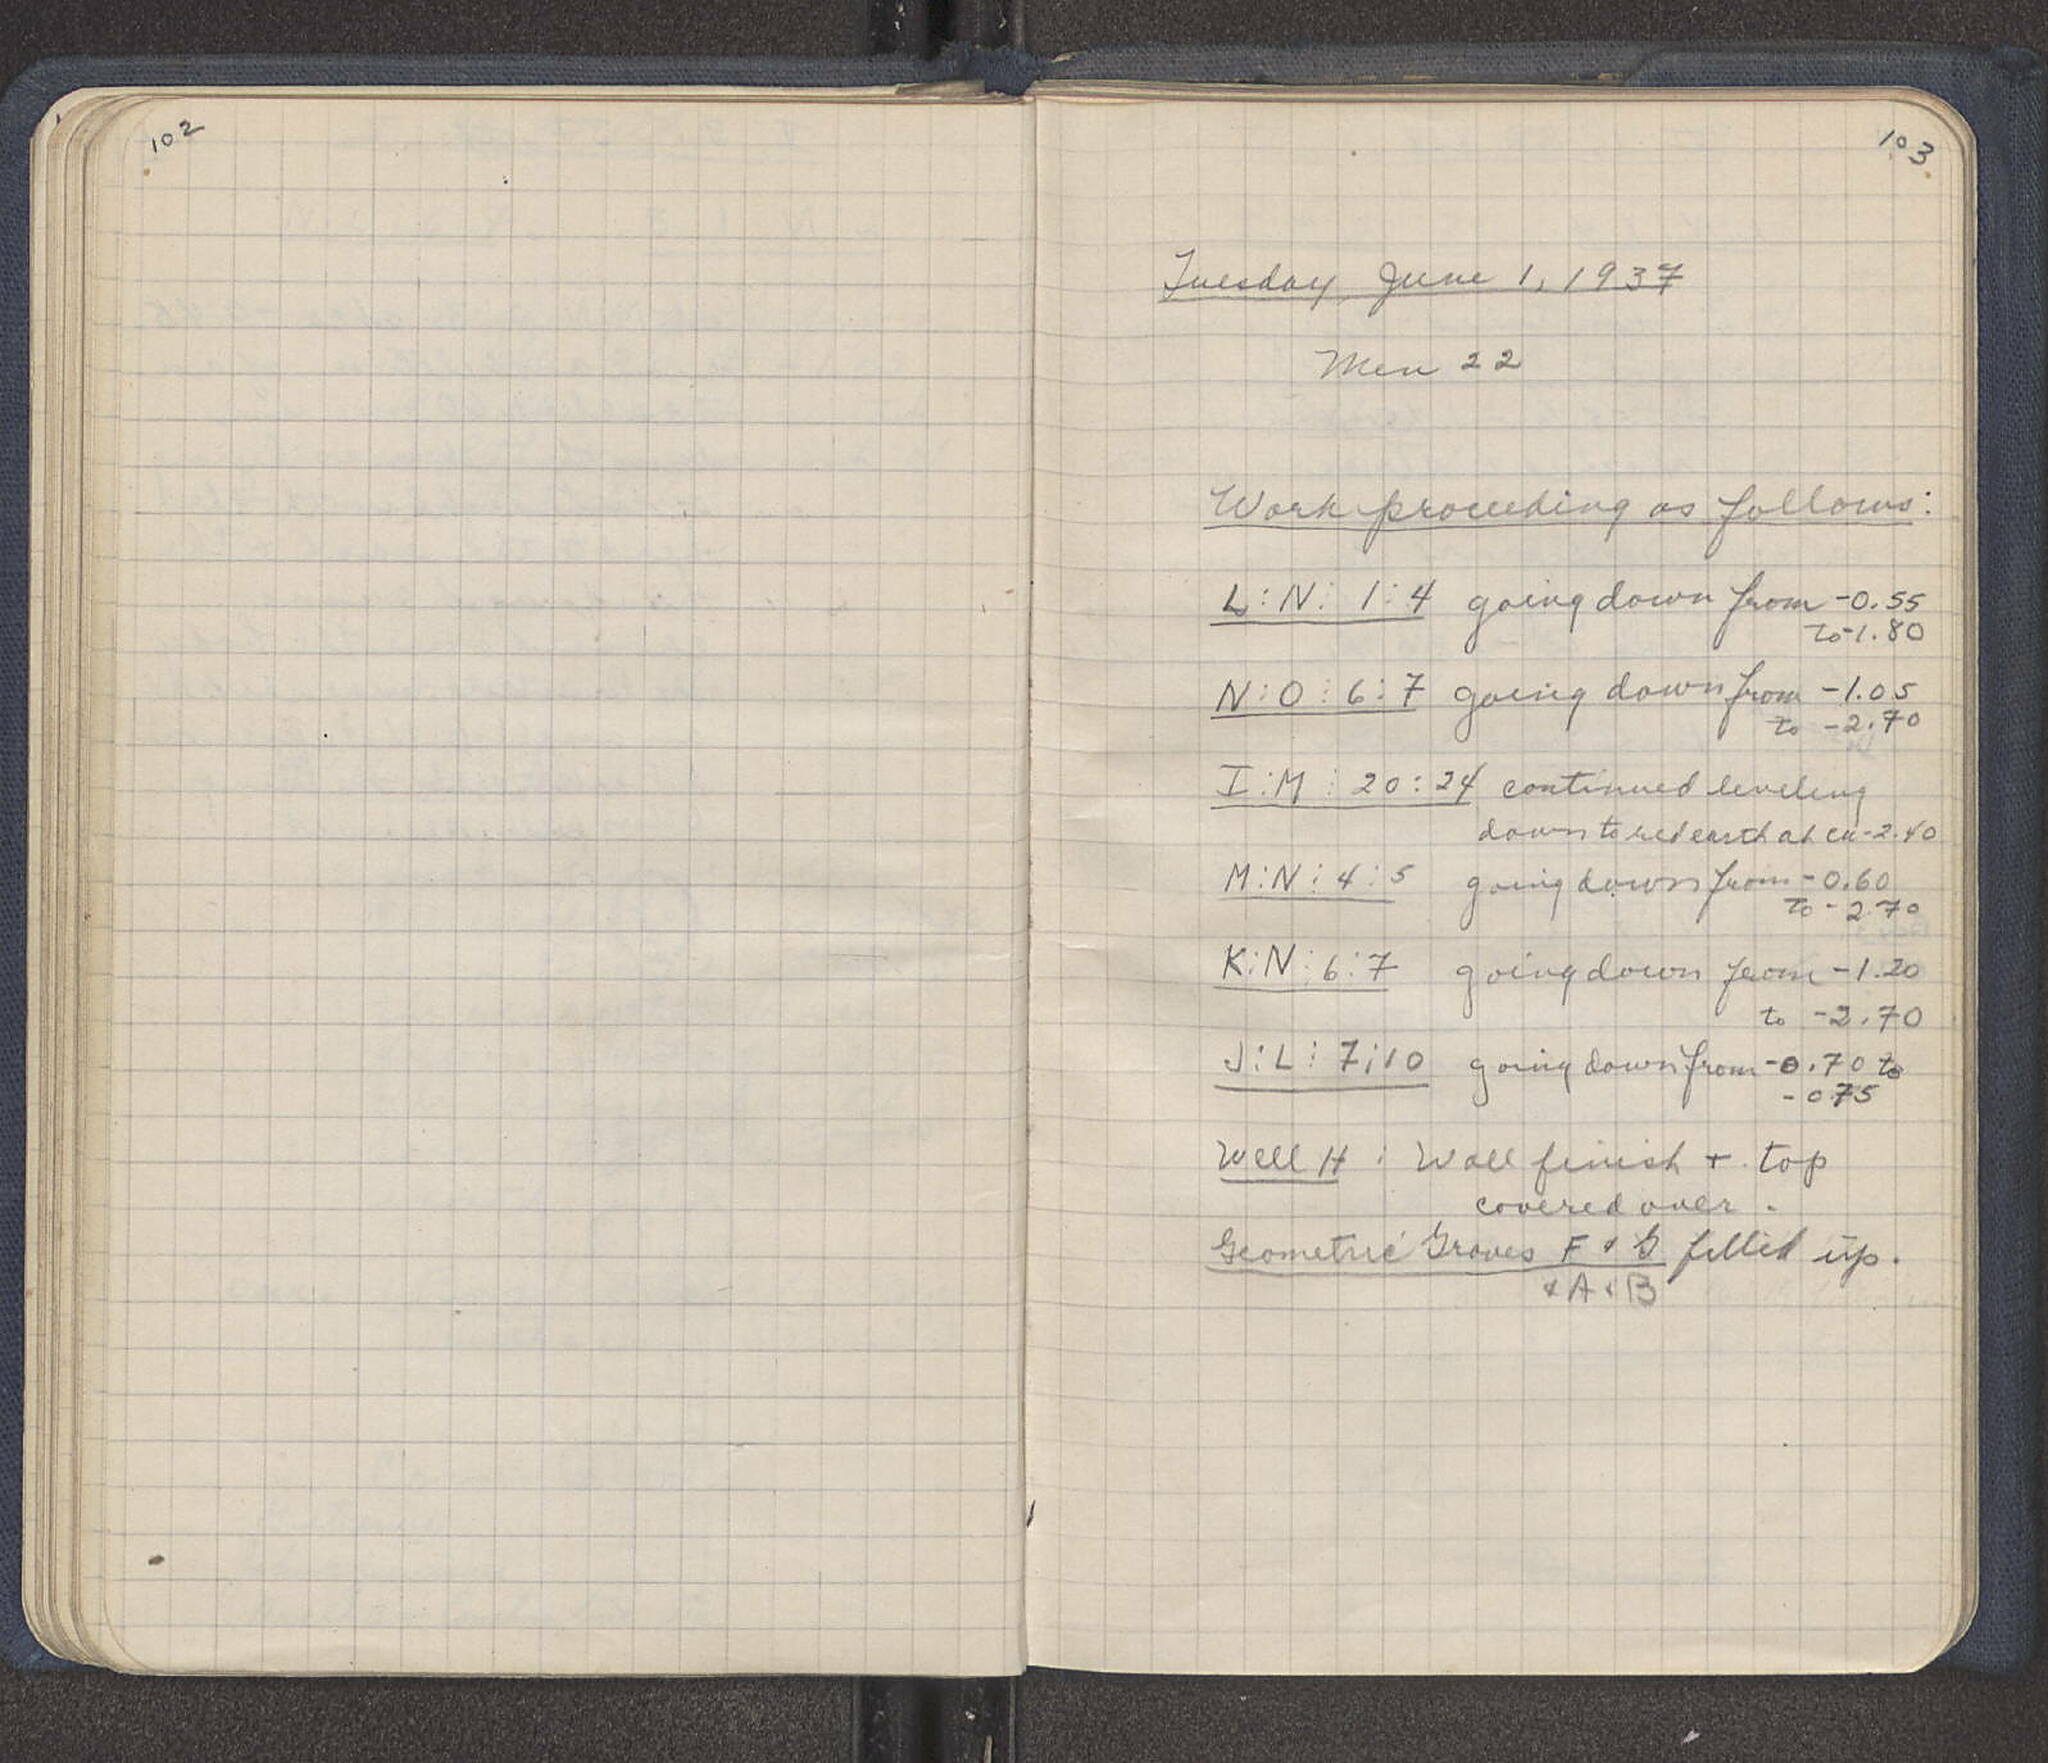 102
103
Tuesday, June 1, 1937
Men 22
Work proceeding as follows:
L:N: 1:4 going down from -0.55
to -1.80
N:O:6:7 going down from -1.05
to -2.70
I:M:20:24 continued leveling
down to red earth at ca -2.40
M:N:4:5 going down from -0.60
to -2.70
K:N:6:7 going down from -1.20
to -2.70
J:L:7:10 going down from -0.70 to
-0.75
Well H: Wall finish + top
covered over.
Geometric Graves F & G filled up.
& A & B